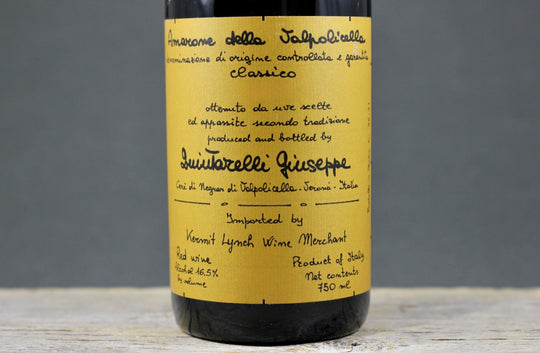 Amarone della Valpolicella
denominazione di origine controllata e garantita
Classico
ottenuto da uve scelte
ed appassite secondo tradizione
produced and bottled by
Quintarelli Giuseppe
Cerè di Negrar di Valpolicella - Verona - Italia
Imported by
Kermit Lynch Wine Merchant
Red wine
Alcohol 16,5%
by volume
Product of Italy
Net contents
750 ml